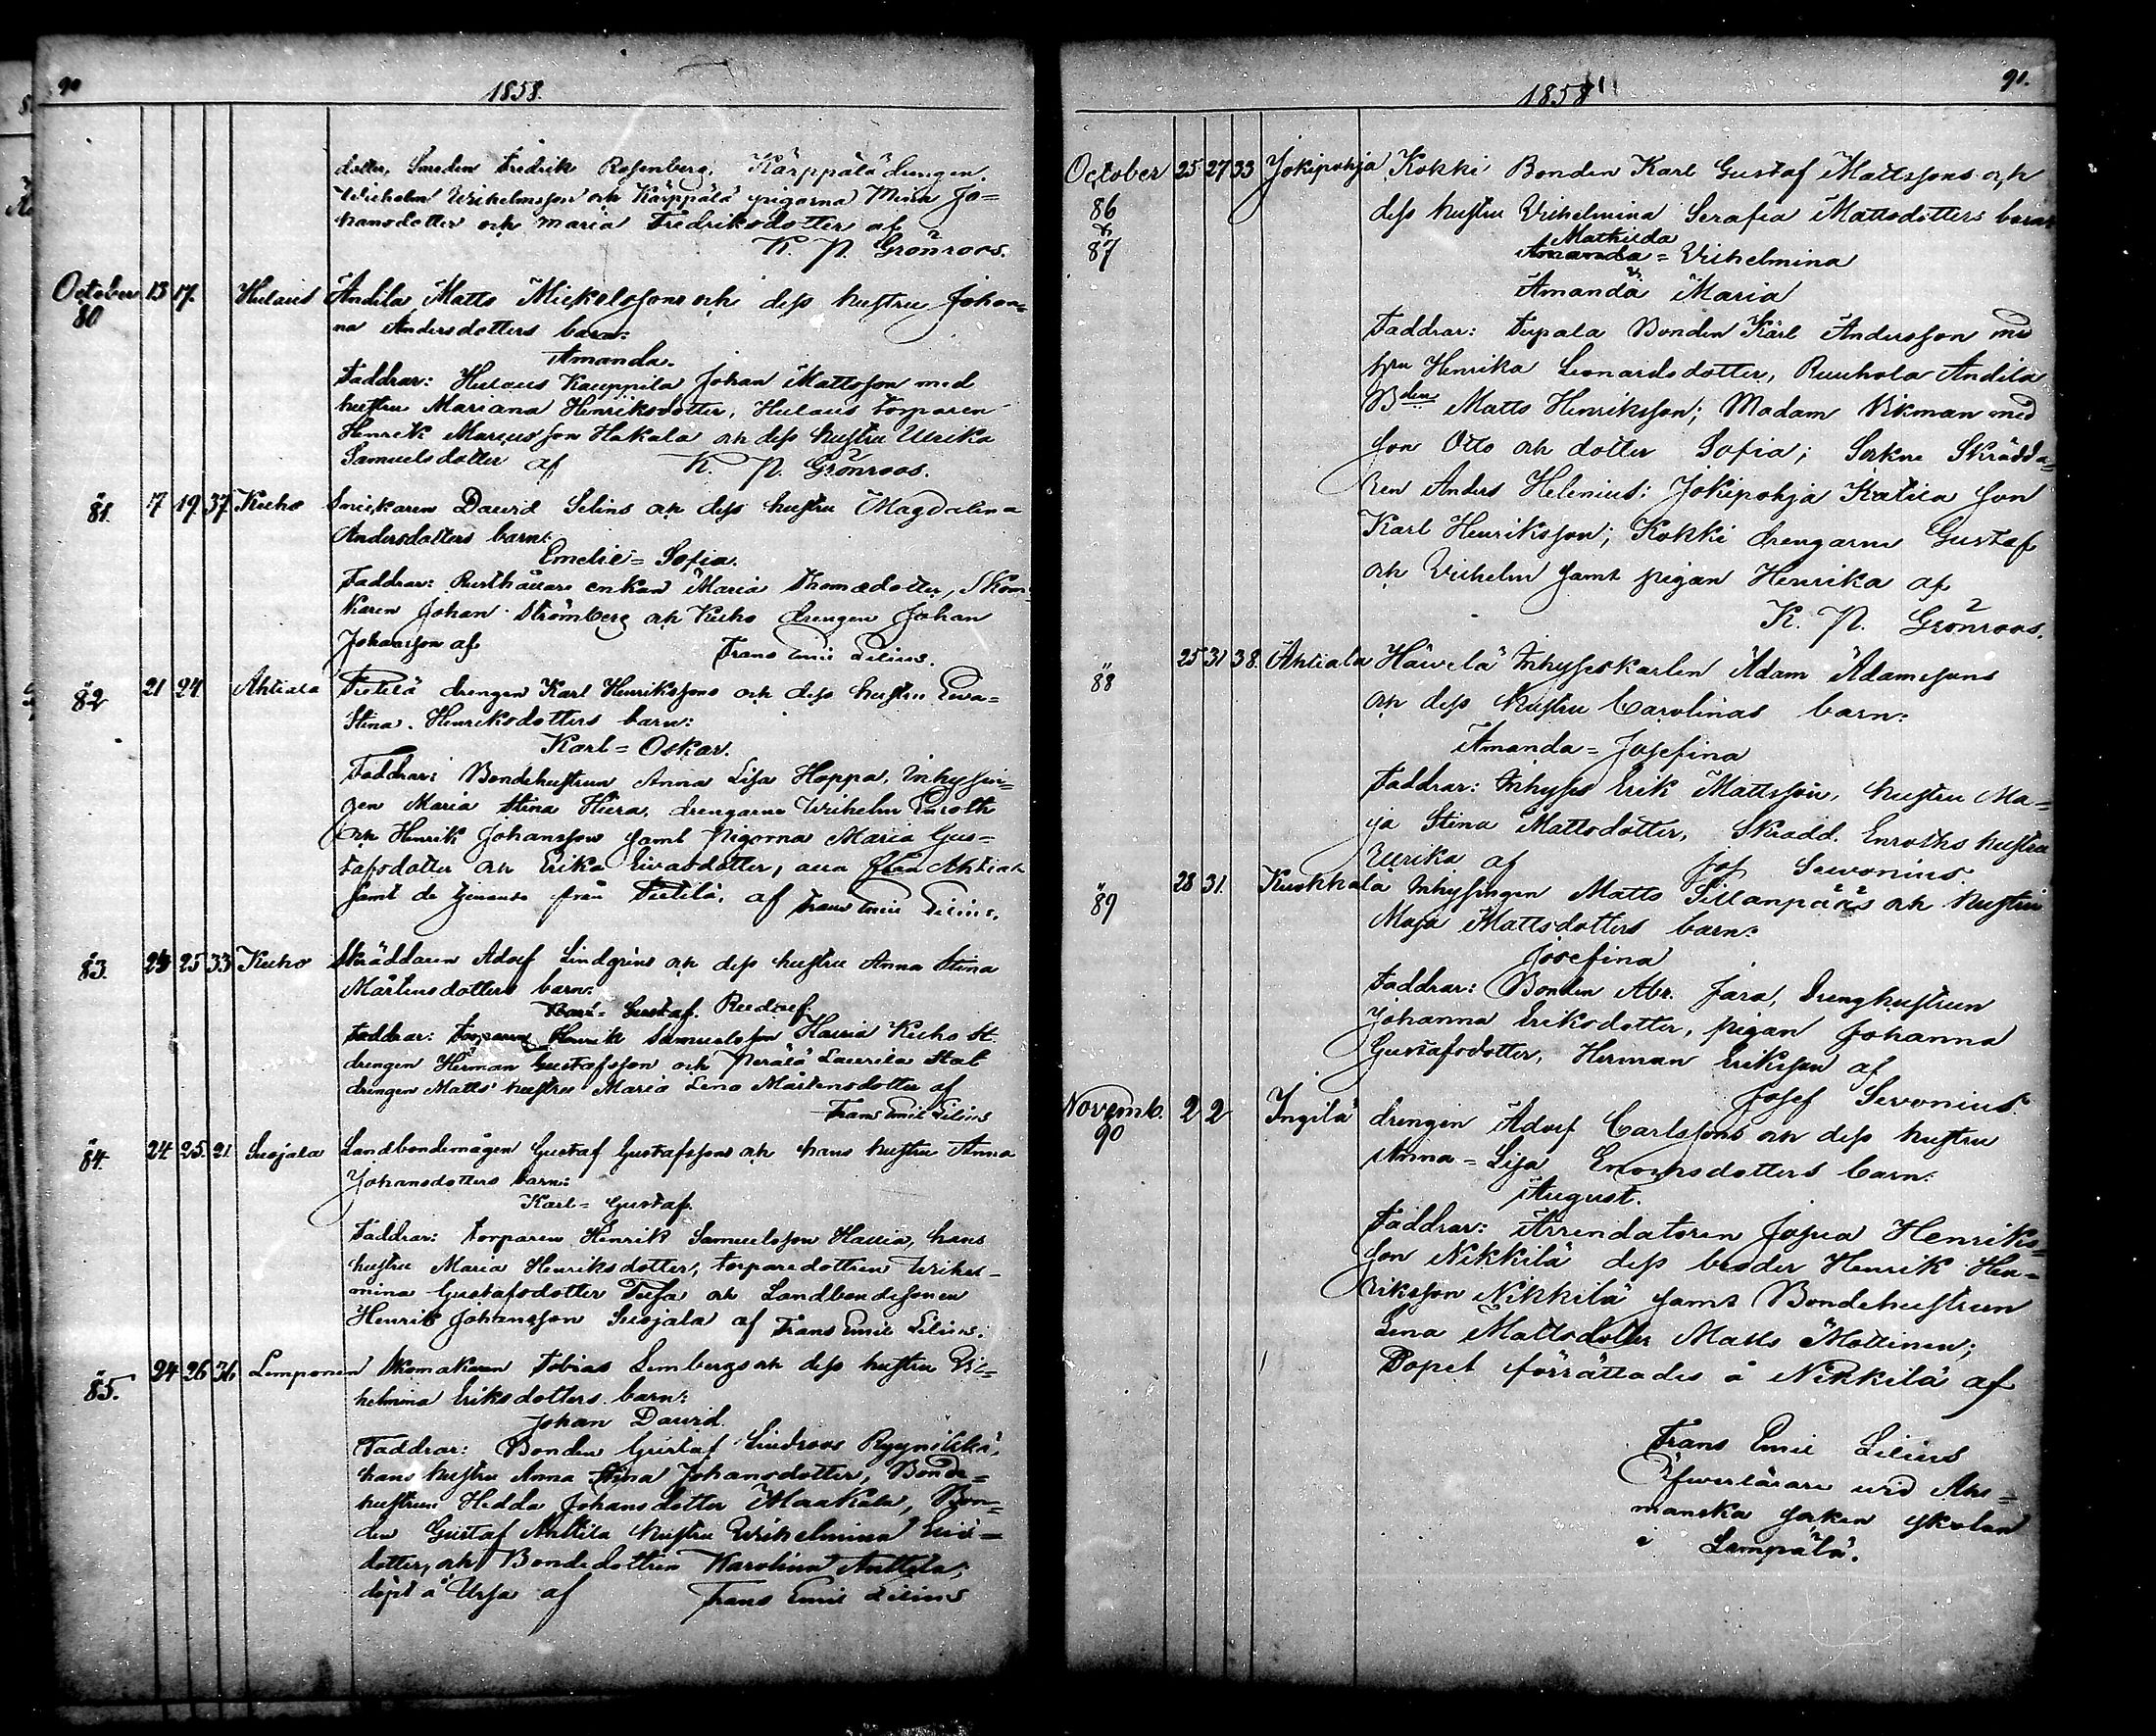 90
1858.
dotter, Smeden Fredrik Rosenberg, Kärppälä drengen
Wilhelm Wilhelmsson och Kärppälä pigorna Mina Jo=
hansdotter och Maria Fredriksdotter af
K. N. Grönroos.
October 13 17. Hulaus Andila Matts Mickelssons och dess hustru Johan=
80 na Andersdotters barn:
Amanda.
Faddrar: Hulaus Kauppila Johan Mattsson med
hustru Mariana Henriksdotter, Hulaus torparen
Henrik Hakala och dess hustru Ulrika
Samuelsdotter af K. N. Grönroos.
" 81. 17 19 37 Kuho Snickaren David Selins och dess hustru Magdalena
Andersdotters barn:
Emelie= Sofia.
Faddrar: Rusthållare enkan Maria Thomædotter, Skom=
karen Johan Strömberg och Kuho drengen Johan
Johansson af Frans Emil Lilius.
" 82 21 24. Ahtiala Pietilä drengen Karl Henrikssons och dess hustru Eva=
Stina Henriksdotters barn:
Karl= Oskar.
Faddrar: Bondehustrun Anna Lisa Hoppa, Inhysin=
gen Maria Stina, drengarne Wilhelm Enroth
och Henrik Johansson samt pigorna Maria Gus=
tafsdotter och Erika, alla från Ahtiala
samt de från Pietilä, af Frans Emil Lilius.
" 83. 23 25 33 Kuho Skräddaren Adolf Lindgrens och dess hustru Anna Stina
Mårtensdotters barn:
Karl= Gustaf. Rudolf.
Faddrar: Torparen Henrik Samuelsson Hauia Kuho St.
drengen Herman Gustafsson och Perälä Laurila Stat
drengen Matts' hustru Maria Lena Mårtensdotter af
Frans Emil Lilius
" 84. 24 25. 21. Suojala Landbondemågen Gustaf Gustafssons och hans hustru Anna
Johansdotters barn:
Karl= Gustaf.
Faddrar: torparen Henrik Samuelsson Hauia, hans
hustru Maria Henriksdotter, torparedottren Wilhel=
mina Gustafsdotter och Landbondesonen
Henrik Johansson Suojala af Frans Emil Lilius.
" 85. 24 26 36 Lemponen Skomakaren Tobias Lembergs och dess hustru Wil=
helmina Eriksdotters barn:
Johan David.
Faddrar: Bonden Gustaf Lindroos Ryynikkä,
hans hustru Anna Stina Johansdotter, Bonde=
hustrun Hedda Johansdotter Maakala, Bon=
den Gustaf Anttila hustru Wilhelmina
dotter, och Bondedottren Karolina Anttila,
döpt å Urja af Frans Emil Lilius
91.
1858
October 25 27 33 Jokipohja Kokki Bonden Karl Gustaf Mattssons och
86 dess hustru Wilhelmina Serafia Mattsdotters barn
& Mathilda
87 Amanda= Wilhelmina
&
Amanda Maria
Faddrar: Tupala Bonden Karl Andersson med
hru Henrika Leonardsdotter, Ruuhola Andila
Bden Matts Henriksson; Madam Vikman med
son Otto och dotter Sofia; Serkne Skrädda=
ren Anders Helenius; Jokipohja Katila son
Karl Henriksson; Kokki drengarne Gustaf
och Wilhelm samt pigan Henrika af
K. N. Grönroos.
" 88 25 31 38. Ahtiala Häivelä Inhyseskarlen Adam Adamssons
och dess hustru Carolinas barn:
Amanda= Josefina
Faddrar: Inhyses Erik Mattsson, hustru Ma=
ja Stina Mattsdotter, Skrädd. Enroths hustru
Ulrika af Jos Sevonius.
" 89 28 31. Kuokkala Inhysingen Matts Sillanpääs och hustru
Maja Mattsdotters barn:
Josefina
Faddrar: Bonden Abr. Jara, Drenghustrun
Johanna Eriksdotter, pigan Johanna
Gustafsdotter, Herman Eriksson af
Josef Sevonius.
Novemb. 2 2 Ingilä drengen Adolf Carlssons och dess hustru
90 Anna= Lisa Enochsdotters barn:
August.
Faddrar: Arrendatoren Josua Henriks=
son Nikkilä dess broder Henrik Hen=
riksson Nikkilä samt Bondehustrun
Lena Mattsdotter Matts Mottinen;
Dopet förrättades å Nikkilä af
Frans Emil Lilius
Öfverlärare wid Ahl=
manska socken skolan
i Lempälä.